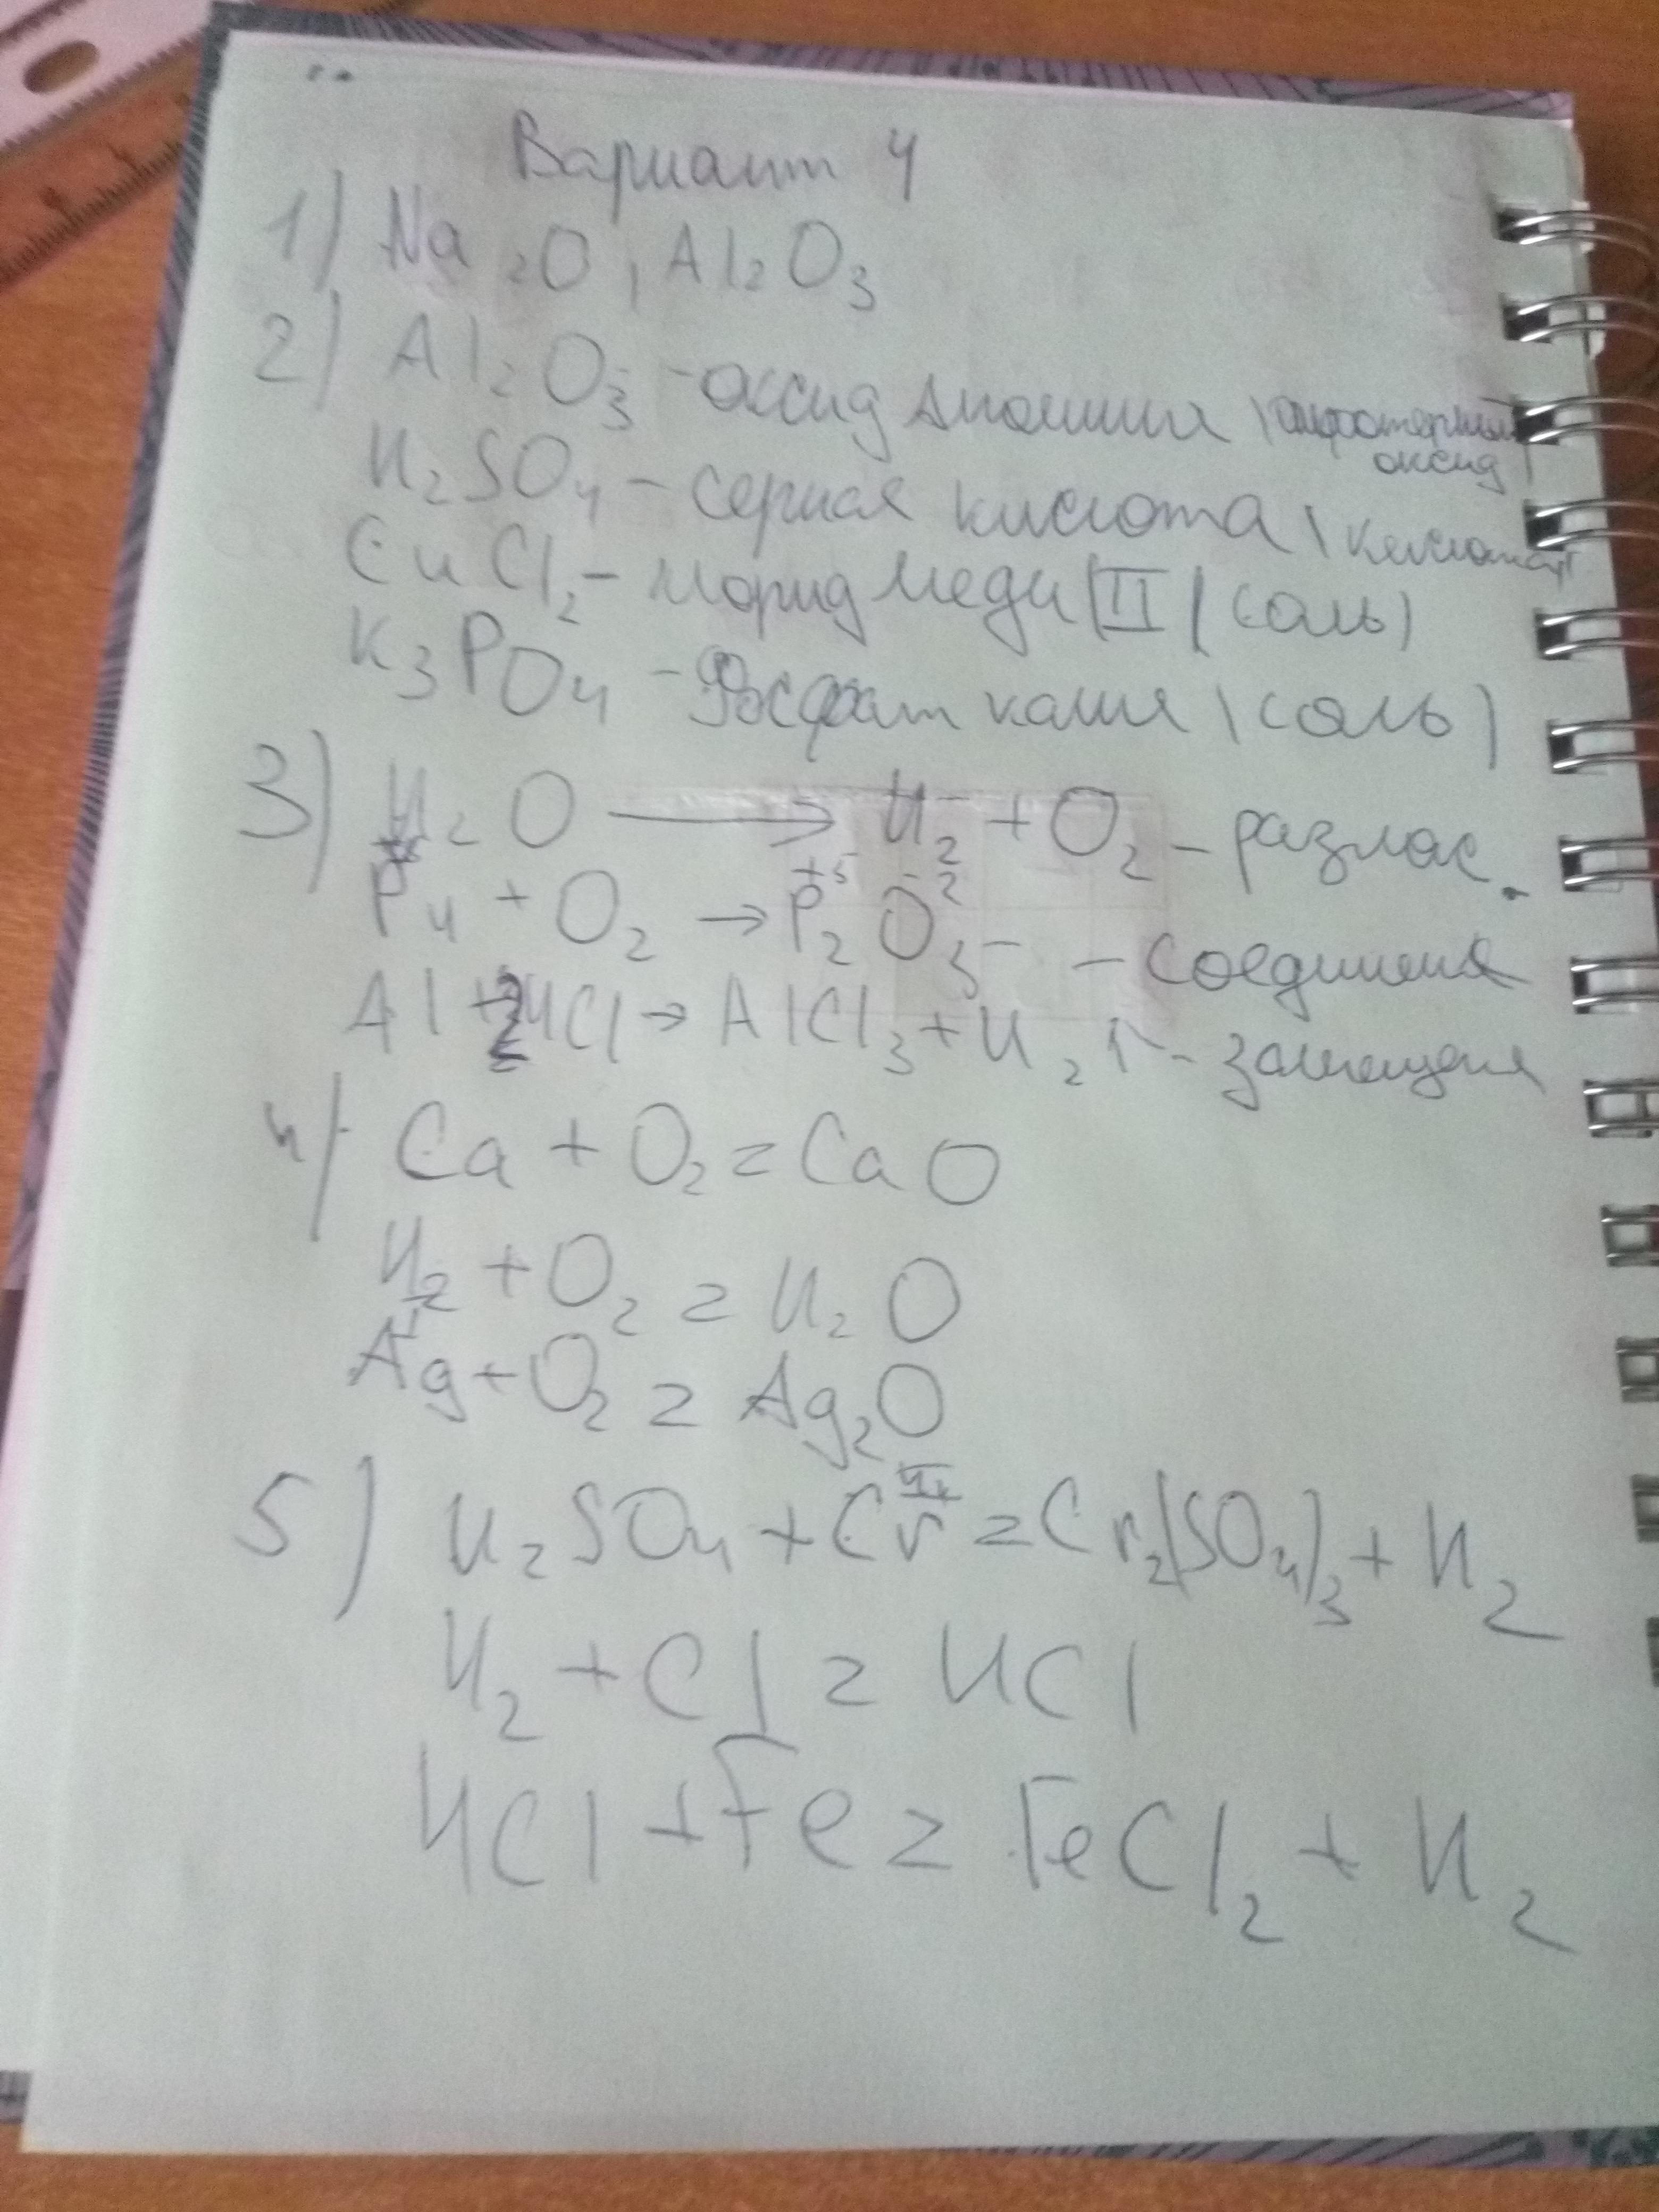 Вариант 4
1) Na₂O, Al₂O₃
2) Al₂O₃ - оксид Алюминия (амфотерный
оксид)
H₂SO₄ - серная кислота (кислота)
CuCl₂ - хлорид Меди (II) (соль)
K₃PO₄ - Фосфат калия (соль)
3) H₂O → H₂ + O₂ - разлож.
P₄ + O₂ → P₂⁺⁵O₃⁻² - - соединения
Al + 2HCl → AlCl₃ + H₂↑ - замещения
4) Ca + O₂ = CaO
H₂ + O₂ = H₂O
Ag + O₂ = Ag₂O
5) H₂SO₄ + Cr = Cr₂(SO₄)₃ + H₂
H₂ + Cl = HCl
HCl + Fe = FeCl₂ + H₂